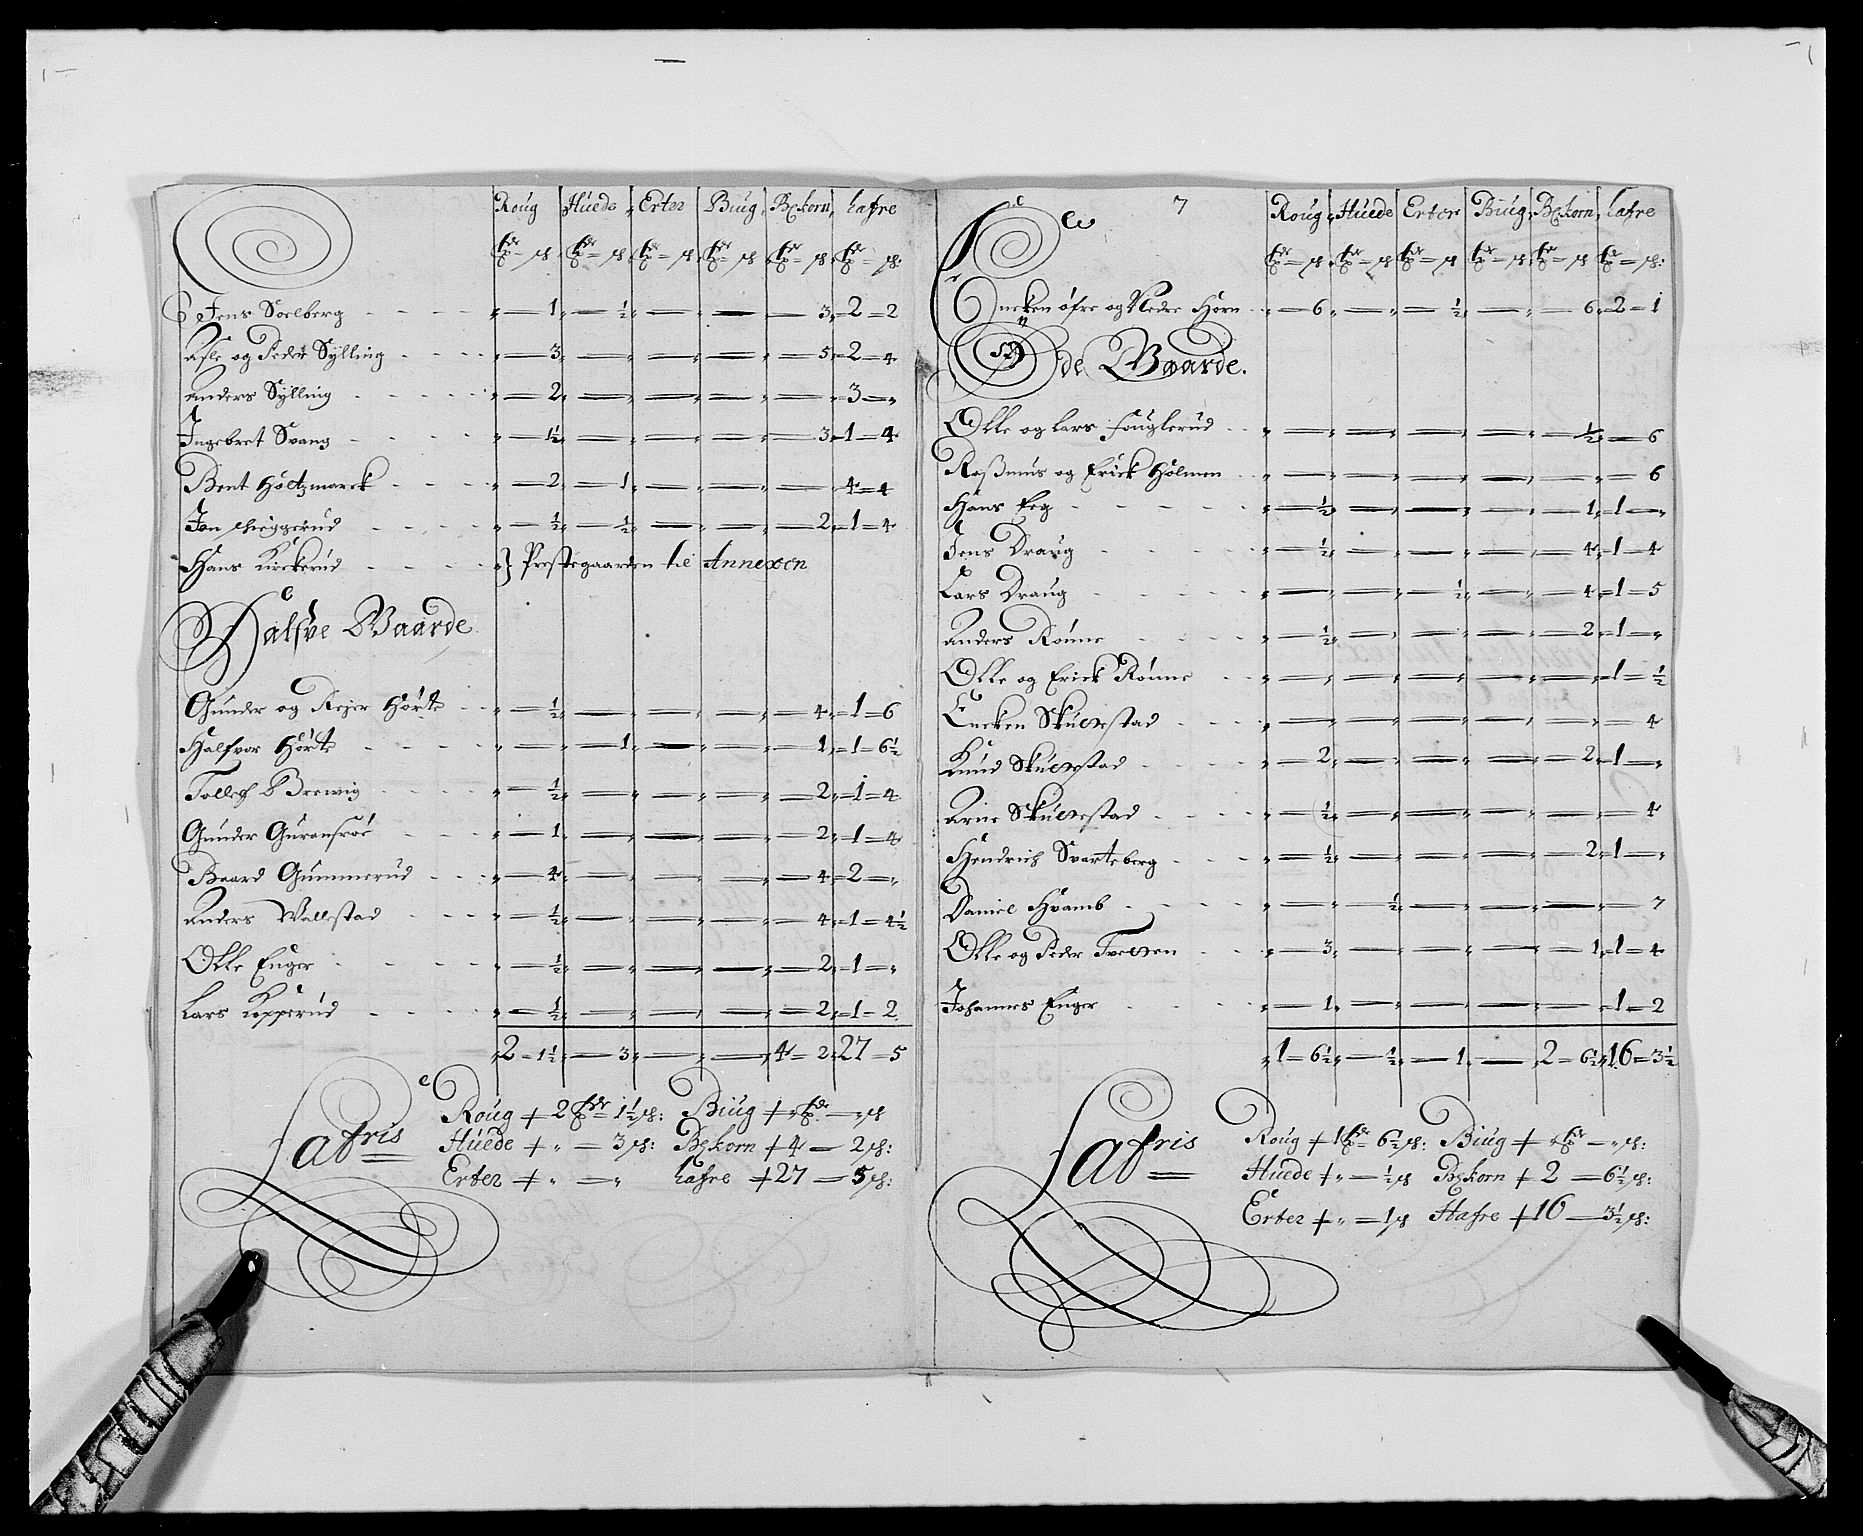 Roug Huede Erter Biug Bl:korn hafre
Jens Soelberg - 1 - ½ - - - 3 - 2 = 2
og Peder Sylling - 3 - - - - 5 - 2 = 4
Anders Sylling - 2 - - - - - 3 = "
Ingebret Svang - 1½ - - - - 3 - 1 = 4
Bent Holtzmarck - 2 - 1 - - - - 4 = 4
Jon - ½ - ½ - - - 2 - 1 = 4
Hans Kirckerud } Prestegaarden til Annexen
Halfve Gaarde
Gunder og Rejer Hörte - ½ - - - - 4 - 1 = 6
Halfvor Hörte - - 1 - - - 1 - 1 = 6½
Tollef Brewig - ½ - - - - 2 - 1 = 4
Gunder - 1 - - - - 2 - 1 = 4
Baard Gummerud - 4 - - - - 4 - 2 = "
Anders Wallestad - ½ - - - - 4 - 1 = 4½
Olle Enger - ½ - - - - 2 - 1 = "
Lars Kopperud - ½ - - - - 2 - 1 = 2
2 = 1½ - 3 - - - 4 = 2 27 = 5
Latris
Roug + 2 1½ Biug + " "
Huede + " — 3 Bl:korn + 4 — 2
Erter + " — " hafre + 27 — 5
7
Roug Huede Erter Biug Bl:korn hafre
Encken öfre og Nedre Horn - 6 - - ½ - - 6 - 2 = 1
Öde Gaarde.
Olle og Lars fouglerud - - - - - ½ - 6
Rasmus og Erick Holmen - - - - - - 6
Hans Eeg - ½ - - - - 1 - 1 - "
Jens Draug - ½ - - - - 4 - 1 = 4
Lars Draug - - - ½ - - 4 - 1 = 5
Anders Rönne - ½ - - - - 2 - 1 - "
Olle og Erick Rönne - - - - - - 1 = ½
Encken Skuerstad - - - - - - 4
Knud Skuerstad - 2 - - - - 2 - 1 - "
Arne Skuerstad - ½ - - - - - 4
Hendrich Svarteberg - ½ - - - - 2 - 1 - "
Daniel Hvamb - - ½ - - - - 7
Olle og Peder Tveren - 3 - - - - 1 - 1 = 4
Johannes Enger - 1 - - - - - 1 = 2
1 = 6½ - ½ - 1 - - 2 = 6½ 16 = 3½
Latris
Roug + 1 6½ Biug + " — "
Huede + " — ½ Bl:korn + 2 — 6½
Erter + " — 1 Hafre + 16 — 3½